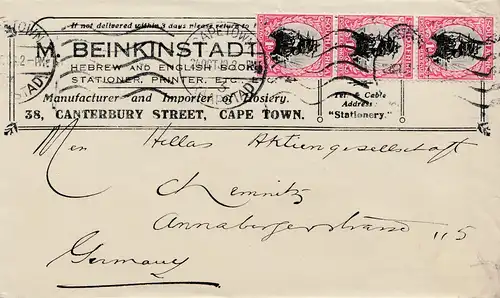 If not delivered within 8 days please return to
M. BEINKINSTADT
HEBREW AND ENGLISH BOOKS
STATIONER, PRINTER, ETC., ETC.
Manufacturer and Importer of Hosiery.
38, CANTERBURY STREET, CAPE TOWN.
Tel. & Cable
Address:
"Stationery."
CAPETOWN
KAAPSTAD
Hellas Aktiengesellschaft
Chemnitz
Annabergerstrasse 115
Germany